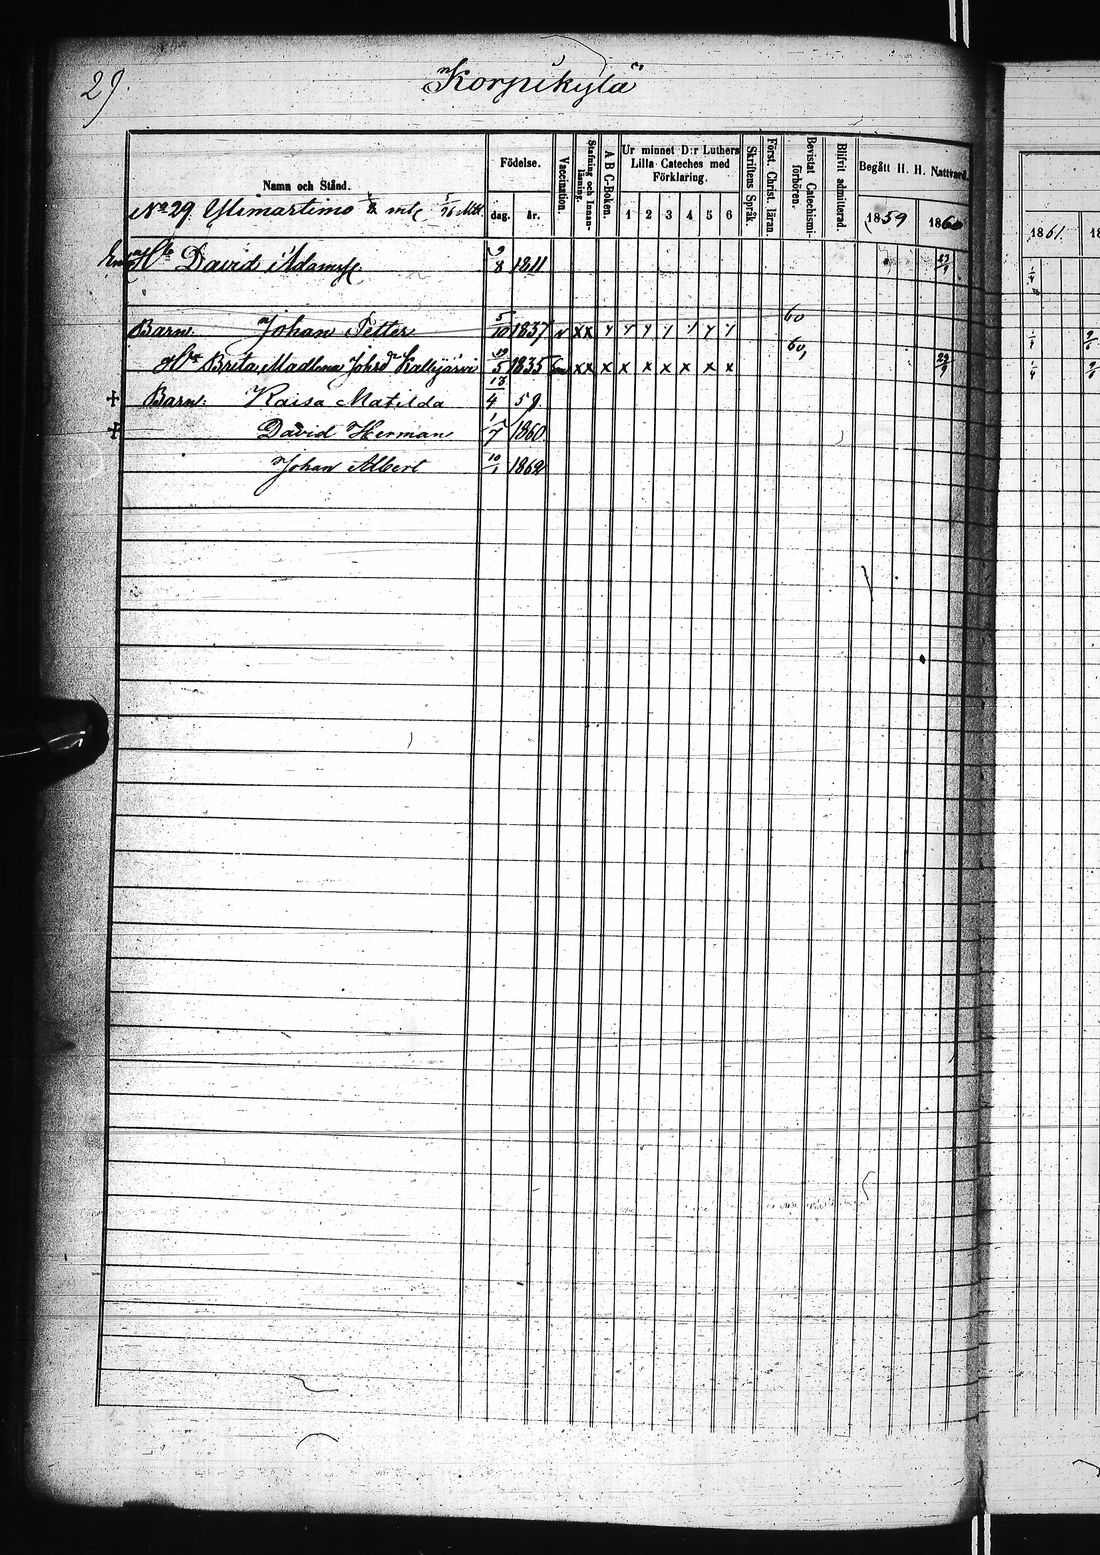 29.
Korpikylä
Namn och Stånd.
Födelse.
dag. år.
Vaccination.
Stafning och Innanläsning.
A B C-Boken.
Ur minnet D:r Luthers Lilla Cateches med Förklaring.
1 2 3 4 5 6
Skriftens Språk.
Först. Christ. läran
Bevistat Catechismiförhören.
Blifvit admitterad.
Begått H. H. Nattvard.
1859 1860
1861
No 29. Ylimartimo
David Adamss. 9/8 1811 23/9
Barn. Johan Petter 5/10 1837 v x x 60
Brita Madlena Johsdr Kallijärvi 19/5 1835 x x x x x x x x x 60, 23/9
+ Barn. Kaisa Matilda 18/4 59
+ David Herman 1/7 1860
Johan Albert 10/1 1862